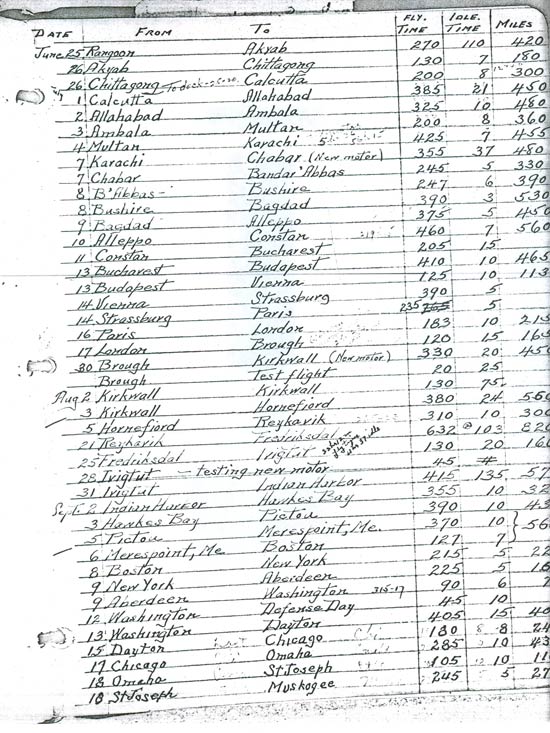 DATE FROM TO FLY. TIME IDLE. TIME MILES
June 25 Rangoon Akyab 270 110 420
26 Akyab Chittagong 130 7 180
26 Chittagong Calcutta 200 8 300
1 Calcutta Allahabad 385 21 450
2 Allahabad Ambala 325 10 480
3 Ambala Multan 200 8 360
4 Multan Karachi 425 7 455
7 Karachi Chabar (New motor) 355 37 480
7 Chabar Bandar Abbas 245 5 330
8 B'Abbas- Bushire 247 6 390
8 Bushire Bagdad 390 3 530
9 Bagdad Alleppo 375 5 450
10 Alleppo Constan 460 7 560
11 Constan Bucharest 205 15
13 Bucharest Budapest 410 10 465
13 Budapest Vienna 125 10 113
14 Vienna Strassburg 390 5
14 Strassburg Paris 235 5
16 Paris London 183 10 215
17 London Brough 120 15 165
30 Brough Kirkwall (New motor) 330 20 450
Brough Test flight 20 25
Aug 2 Kirkwall Kirkwall 130 75
3 Kirkwall Hornefjord 380 24
5 Hornefjord Reykavik 310 10 300
21 Reykavik Fredriksdal 632 103 820
25 Fredriksdal Ivigtut 130 20
28 Ivigtut - testing new motor 45 #
31 Ivigtut Indian Harbor 415 135 57
Sept. 2 Indian Harbor Hawkes Bay 355 10 32
3 Hawkes Bay Pictou 390 10 43
5 Pictou Merespoint, Me. 370 10 } 56
6 Merespoint, Me Boston 127 7
8 Boston New York 215 5 22
9 New York Aberdeen 225 5
9 Aberdeen Washington 315-17 90 6
12 Washington Defense Day 45 10
13 Washington Dayton 405 15
15 Dayton Chicago 180 8 24
17 Chicago Omaha 285 10 43
18 Omaha St Joseph 105 10 11
18 St Joseph Muskogee 245 5 27